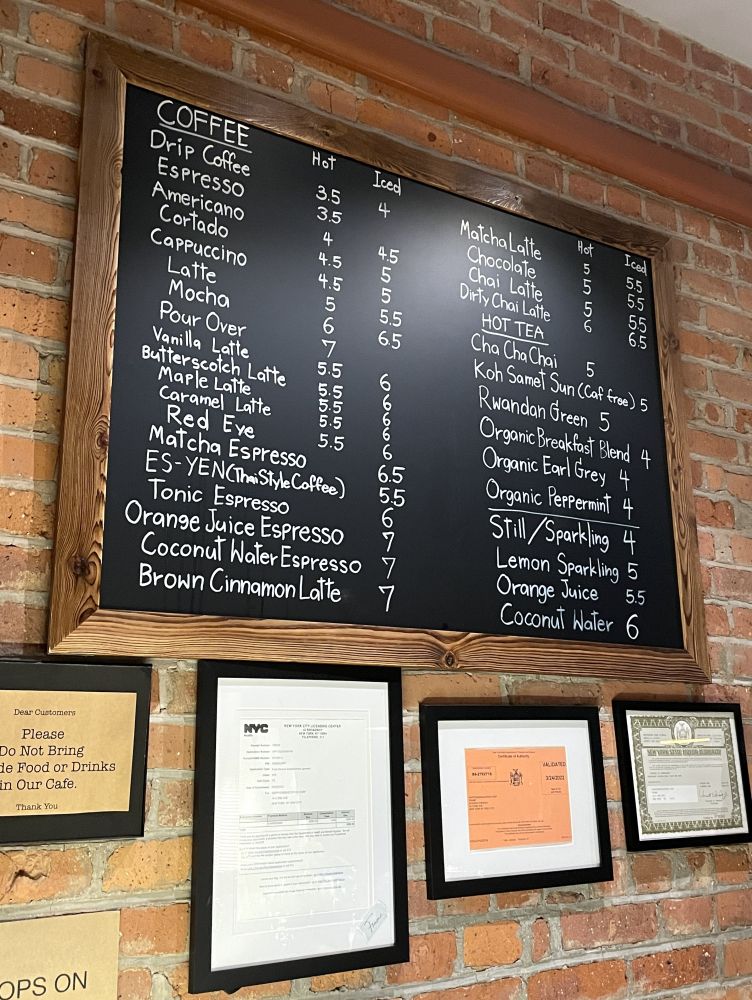 COFFEE Hot Iced
Drip Coffee 3.5 4
Espresso 3.5
Americano 4 4.5
Cortado 4.5 5
Cappuccino 4.5 5
Latte 5 5.5
Mocha 6 6.5
Pour Over 7
Vanilla Latte 5.5 6
Butterscotch Latte 5.5 6
Maple Latte 5.5 6
Caramel Latte 5.5 6
Red Eye 6
Matcha Espresso 6.5
ES-YEN (Thai Style Coffee) 5.5
Tonic Espresso 6
Orange Juice Espresso 7
Coconut Water Espresso 7
Brown Cinnamon Latte 7
Hot Iced
Matcha Latte 5 5.5
Chocolate 5 5.5
Chai Latte 5 5.5
Dirty Chai Latte 6 6.5
HOT TEA
Cha Cha Chai 5
Koh Samet Sun (Caf free) 5
Rwandan Green 5
Organic Breakfast Blend 4
Organic Earl Grey 4
Organic Peppermint 4
Still/Sparkling 4
Lemon Sparkling 5
Orange Juice 5.5
Coconut Water 6
Dear Customers
Please
Do Not Bring
de Food or Drinks
in Our Cafe.
Thank You
OPS ON
NYC
NEW YORK CITY LICENSING CENTER
Certificate of Authority
VALIDATED
3/24/2022